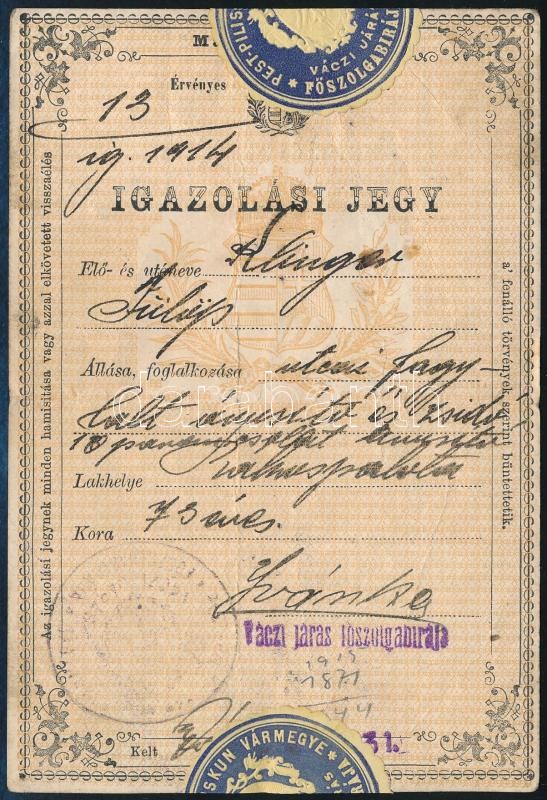 PEST-PILIS
VÁCZI JÁRÁ
* FŐSZOLGABIRÁJ
M.
Érvényes
13
ig. 1914
IGAZOLÁSI JEGY
Elő- és utóneve Klinger
Fülöp
Állása, foglalkozása utcai fagy-
laltó árusító és
Lakhelye Rákospalota
Kora 73 éves.
Ivánka
Váczi járás főszolgabirája
1915
1871
44
Kelt
31.
SKUN VÁRMEGYE *
Az igazolási jegynek minden hamisítása vagy azzal elkövetett visszaélés
a' fenálló törvények szerint büntettetik.
darabanth